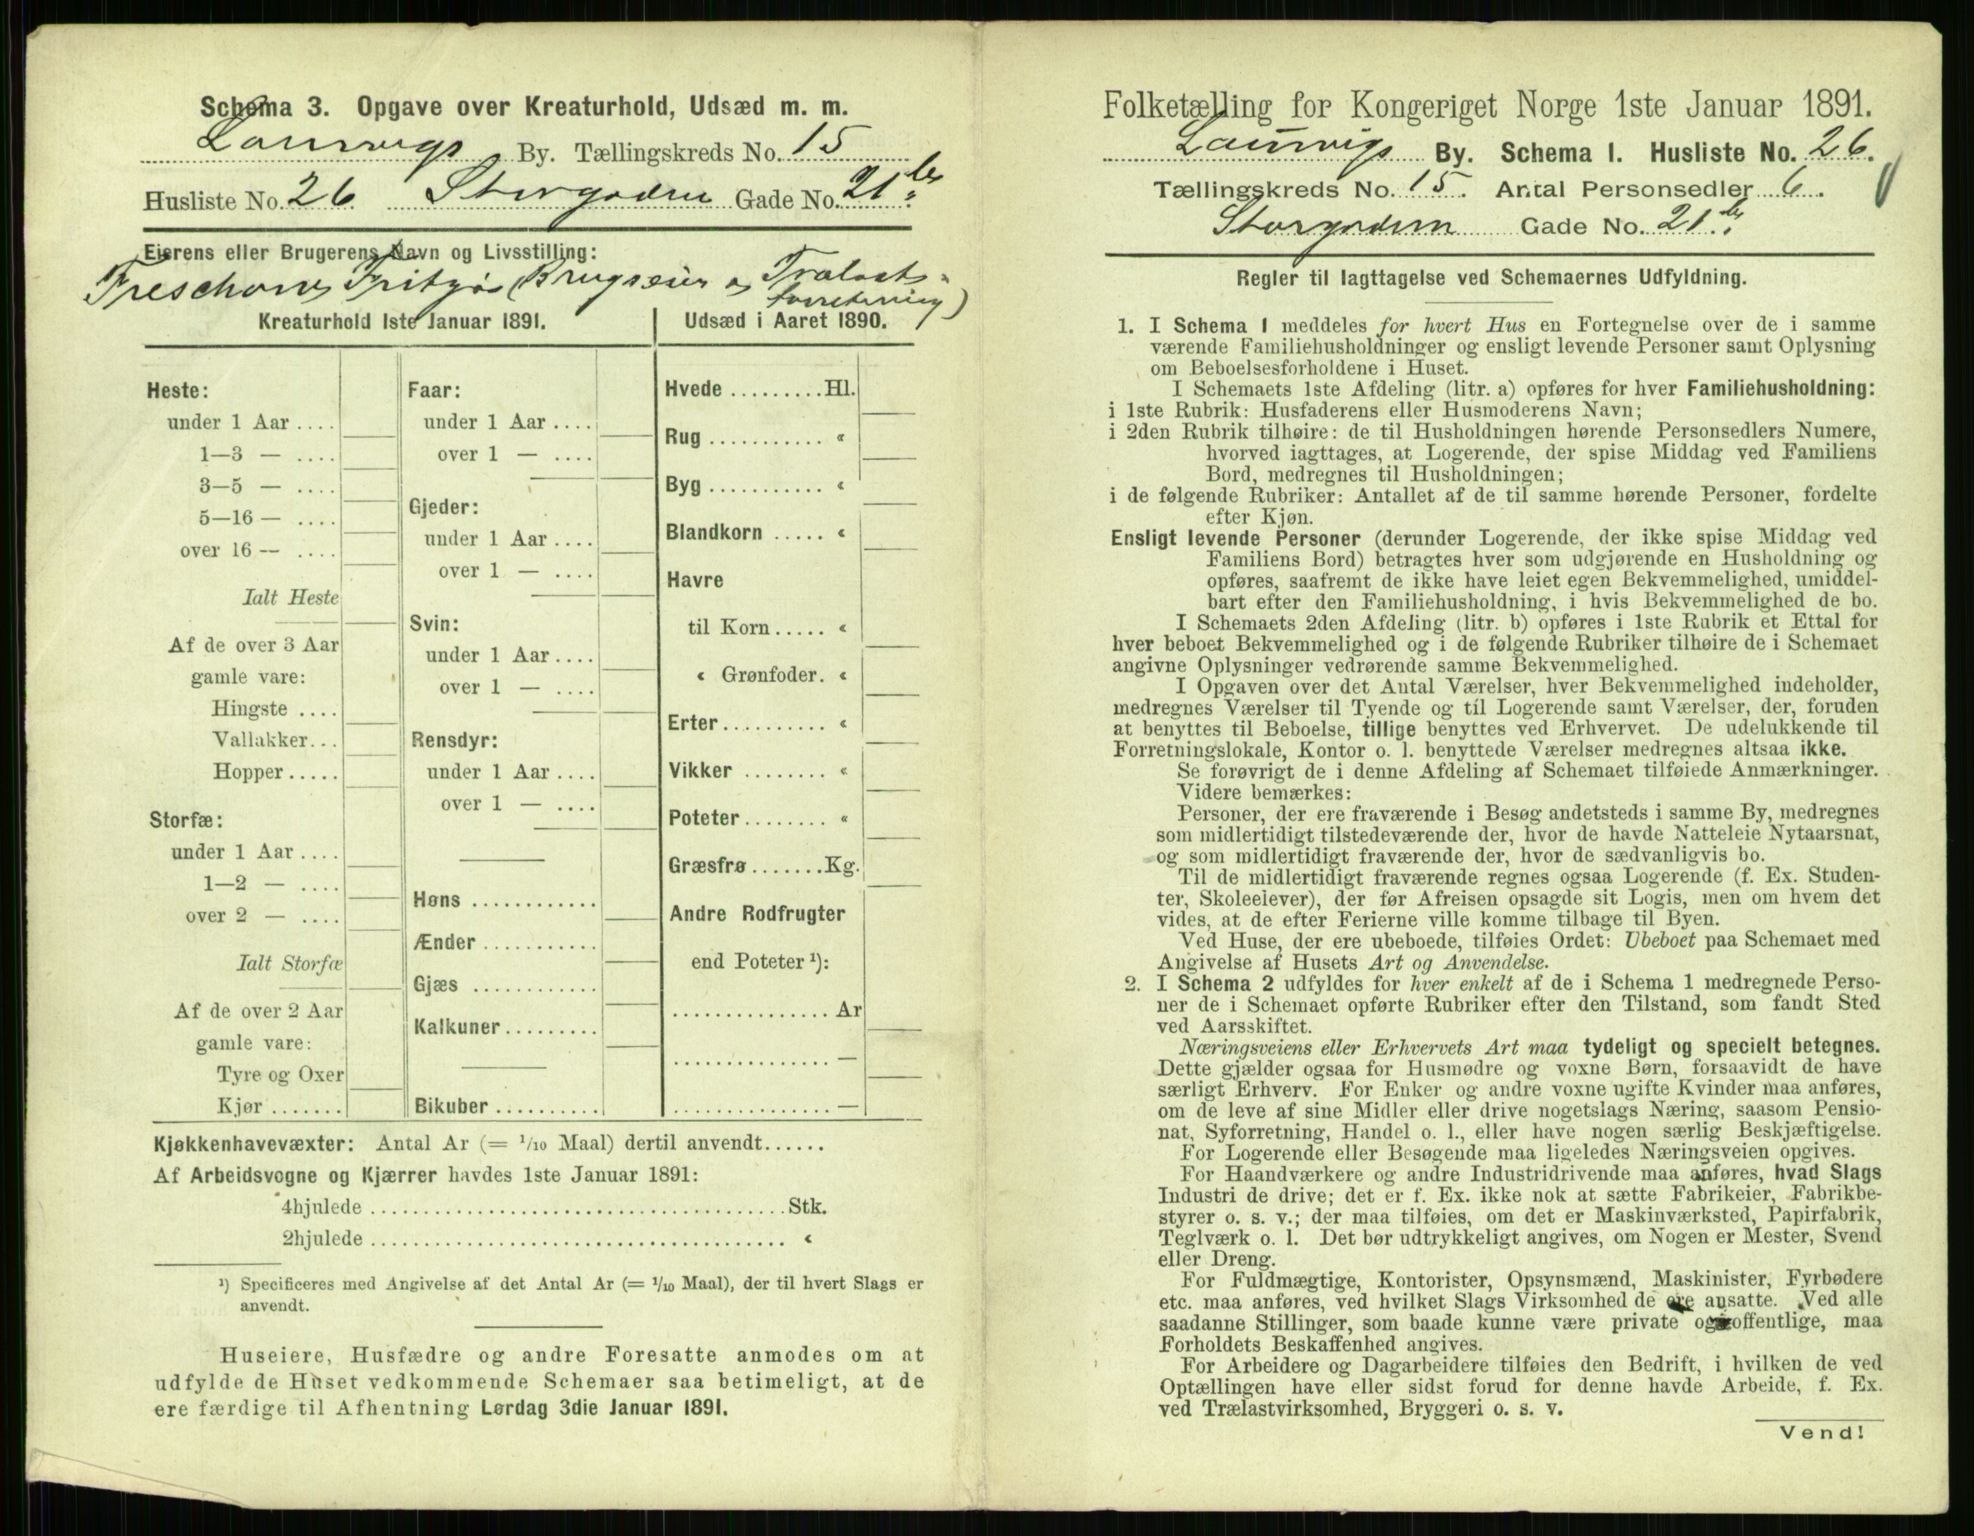 Schema 3. Opgave over Kreaturhold, Udsæd m. m.
Laurvigs By. Tællingskreds No. 15
Husliste No. 26 Storgaden Gade No. 21
Eierens eller Brugerens Navn og Livsstilling:
Treschows Fritzø (Brugseier og Trælast-
forretning)
Kreaturhold 1ste Januar 1891.
Udsæd i Aaret 1890.
Heste:
under 1 Aar ....
1—3 — ....
3—5 — ....
5—16 — ....
over 16 — ....
Ialt Heste
Af de over 3 Aar
gamle vare:
Hingste ....
Vallakker...
Hopper.....
Storfæ:
under 1 Aar ....
1—2 — ....
over 2 — ....
Ialt Storfæ
Af de over 2 Aar
gamle vare:
Tyre og Oxer
Kjør .......
Faar:
under 1 Aar ....
over 1 — ....
Gjeder:
under 1 Aar ....
over 1 — ....
Svin:
under 1 Aar ....
over 1 — ....
Rensdyr:
under 1 Aar ....
over 1 — ....
Høns ............
Ænder ...........
Gjæs ............
Kalkuner.........
Bikuber ..........
Hvede .........Hl.
Rug ........... «
Byg ........... «
Blandkorn ..... «
Havre
til Korn..... «
« Grønfoder. «
Erter.......... «
Vikker ........ «
Poteter........ «
Græsfrø.......Kg.
Andre Rodfrugter
end Poteter ¹):
............... Ar
............... —
............... —
Kjøkkenhavevæxter: Antal Ar (= 1/10 Maal) dertil anvendt......
Af Arbeidsvogne og Kjærrer havdes 1ste Januar 1891:
4hjulede .......................................Stk.
2hjulede ....................................... «
¹) Specificeres med Angivelse af det Antal Ar (= 1/10 Maal), der til hvert Slags er
anvendt.
Huseiere, Husfædre og andre Foresatte anmodes om at
udfylde de Huset vedkommende Schemaer saa betimeligt, at de
ere færdige til Afhentning Lørdag 3die Januar 1891.
Folketælling for Kongeriget Norge 1ste Januar 1891.
Laurvigs By. Schema 1. Husliste No. 26.
Tællingskreds No. 15. Antal Personsedler 6.
Storgaden Gade No. 21
Regler til Iagttagelse ved Schemaernes Udfyldning.
1. I Schema 1 meddeles for hvert Hus en Fortegnelse over de i samme
værende Familiehusholdninger og ensligt levende Personer samt Oplysning
om Beboelsesforholdene i Huset.
I Schemaets 1ste Afdeling (litr. a) opføres for hver Familiehusholdning:
i 1ste Rubrik: Husfaderens eller Husmoderens Navn;
i 2den Rubrik tilhøire: de til Husholdningen hørende Personsedlers Numere,
hvorved iagttages, at Logerende, der spise Middag ved Familiens
Bord, medregnes til Husholdningen;
i de følgende Rubriker: Antallet af de til samme hørende Personer, fordelte
efter Kjøn.
Ensligt levende Personer (derunder Logerende, der ikke spise Middag ved
Familiens Bord) betragtes hver som udgjørende en Husholdning og
opføres, saafremt de ikke have leiet egen Bekvemmelighed, umiddel-
bart efter den Familiehusholdning, i hvis Bekvemmelighed de bo.
I Schemaets 2den Afdeling (litr. b) opføres i 1ste Rubrik et Ettal for
hver beboet Bekvemmelighed og i de følgende Rubriker tilhøire de i Schemaet
angivne Oplysninger vedrørende samme Bekvemmelighed.
I Opgaven over det Antal Værelser, hver Bekvemmelighed indeholder,
medregnes Værelser til Tyende og til Logerende samt Værelser, der, foruden
at benyttes til Beboelse, tillige benyttes ved Erhvervet. De udelukkende til
Forretningslokale, Kontor o. l. benyttede Værelser medregnes altsaa ikke.
Se forøvrigt de i denne Afdeling af Schemaet tilføiede Anmærkninger.
Videre bemærkes:
Personer, der ere fraværende i Besøg andetsteds i samme By, medregnes
som midlertidigt tilstedeværende der, hvor de havde Natteleie Nytaarsnat,
og som midlertidigt fraværende der, hvor de sædvanligvis bo.
Til de midlertidigt fraværende regnes ogsaa Logerende (f. Ex. Studen-
ter, Skoleelever), der før Afreisen opsagde sit Logis, men om hvem det
vides, at de efter Ferierne ville komme tilbage til Byen.
Ved Huse, der ere ubeboede, tilføies Ordet: Ubeboet paa Schemaet med
Angivelse af Husets Art og Anvendelse.
2. I Schema 2 udfyldes for hver enkelt af de i Schema 1 medregnede Perso-
ner de i Schemaet opførte Rubriker efter den Tilstand, som fandt Sted
ved Aarsskiftet.
Næringsveiens eller Erhvervets Art maa tydeligt og specielt betegnes.
Dette gjælder ogsaa for Husmødre og voxne Børn, forsaavidt de have
særligt Erhverv. For Enker og andre voxne ugifte Kvinder maa anføres,
om de leve af sine Midler eller drive nogetslags Næring, saasom Pensio-
nat, Syforretning, Handel o. l., eller have nogen særlig Beskjæftigelse.
For Logerende eller Besøgende maa ligeledes Næringsveien opgives.
For Haandværkere og andre Industridrivende maa anføres, hvad Slags
Industri de drive; det er f. Ex. ikke nok at sætte Fabrikeier, Fabrikbe-
styrer o. s. v.; der maa tilføies, om det er Maskinværksted, Papirfabrik,
Teglværk o. l. Det bør udtrykkeligt angives, om Nogen er Mester, Svend
eller Dreng.
For Fuldmægtige, Kontorister, Opsynsmænd, Maskinister, Fyrbødere
etc. maa anføres, ved hvilket Slags Virksomhed de ere ansatte. Ved alle
saadanne Stillinger, som baade kunne være private og offentlige, maa
Forholdets Beskaffenhed angives.
For Arbeidere og Dagarbeidere tilføies den Bedrift, i hvilken de ved
Optællingen have eller sidst forud for denne havde Arbeide, f. Ex.
ved Trælastvirksomhed, Bryggeri o. s. v.
Vend!